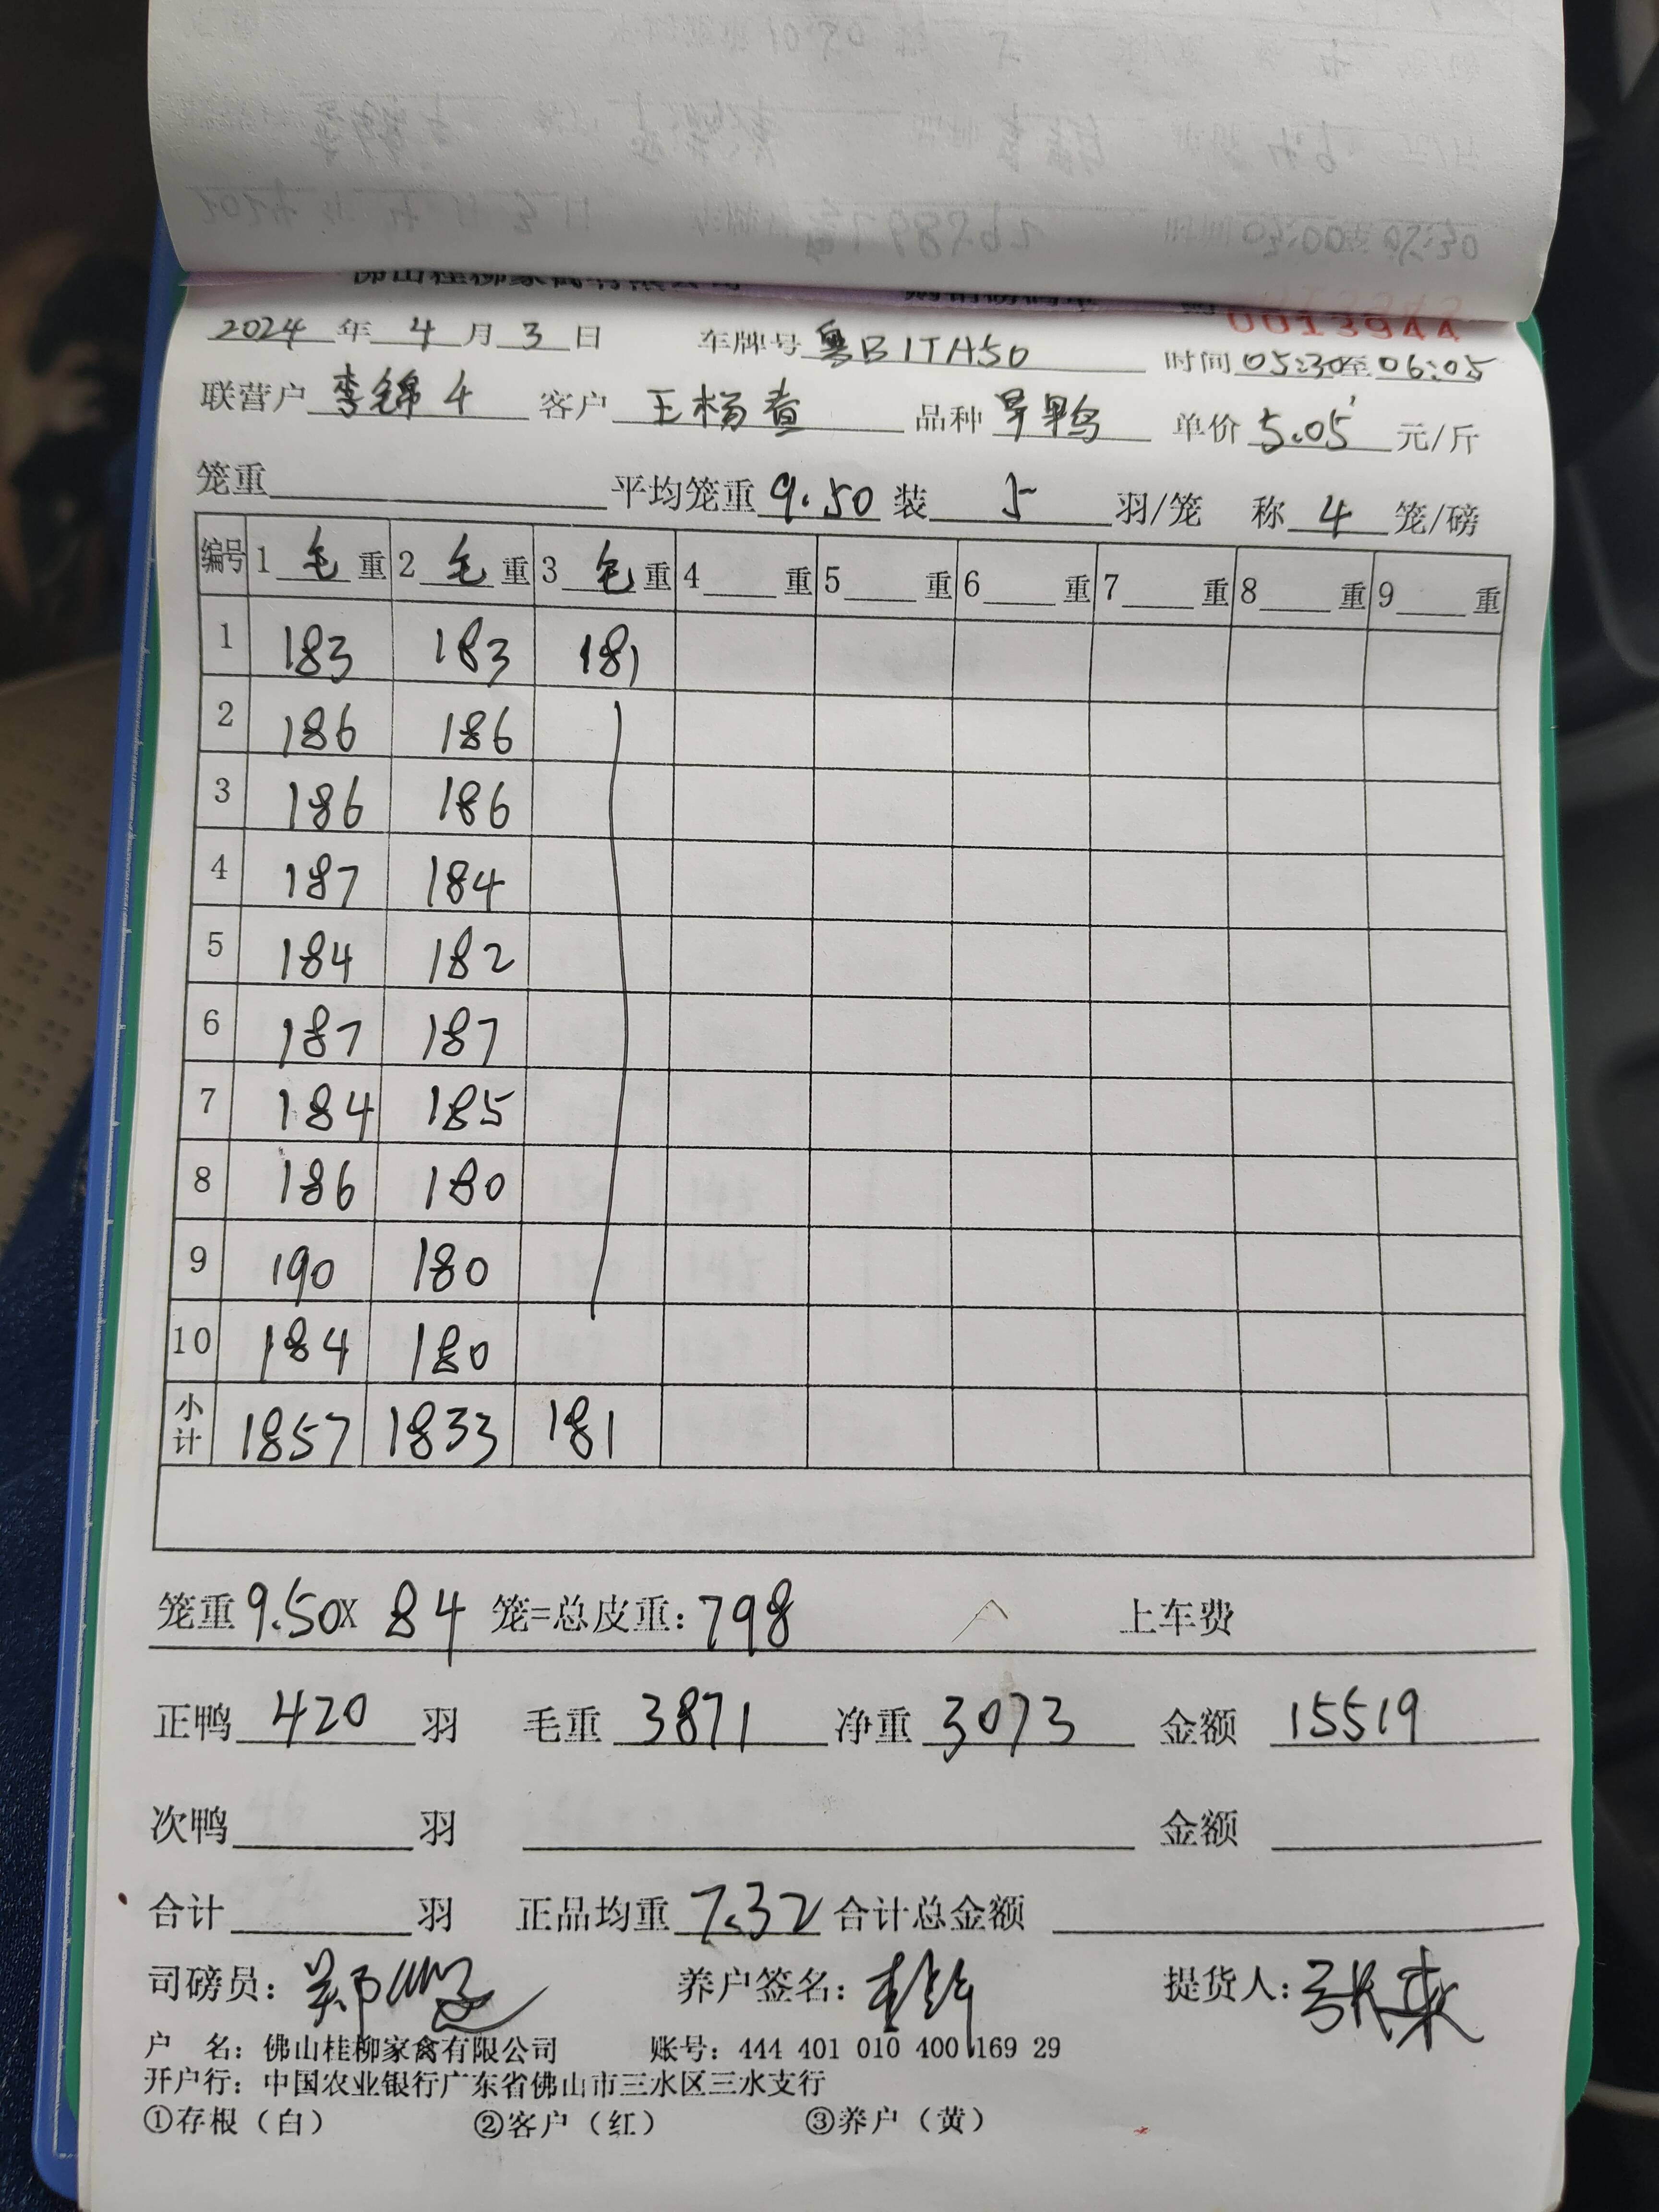 佛山桂柳家禽有限公司 购销磅码单 0013944
2024年4月3日 车牌号 粤B1TA50 时间 05:30至06:05
联营户 李锦4 客户 王杨煮 品种 旱鸭 单价 5.05 元/斤
笼重 平均笼重 9.50 装 5 羽/笼 称 4 笼/磅
编号 1 毛 重 2 毛 重 3 毛 重 4 重 5 重 6 重 7 重 8 重 9 重
1 183 183 181
2 186 186
3 186 186
4 187 184
5 184 182
6 187 187
7 184 185
8 186 180
9 190 180
10 184 180
小计 1857 1833 181
笼重 9.50X 84 笼=总皮重: 798 上车费
正鸭 420 羽 毛重 3871 净重 3073 金额 15519
次鸭 羽 金额
合计 羽 正品均重 7.32 合计总金额
司磅员: 养户签名: 提货人:
户 名: 佛山桂柳家禽有限公司 账号: 444 401 010 400 169 29
开户行: 中国农业银行广东省佛山市三水区三水支行
①存根（白） ②客户（红） ③养户（黄）